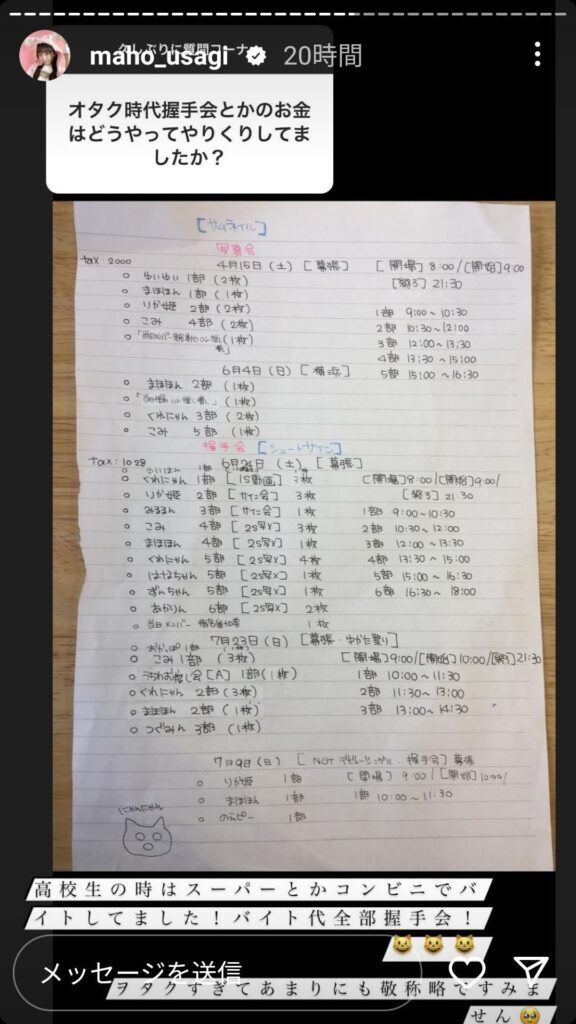 久しぶりに質問コーナー
maho_usagi 20時間
オタク時代握手会とかのお金
はどうやってやりくりしてま
したか？
[サムネイル]
写真会
tax:2000 4月15日(土) [幕張] [開場] 8:00/[開始]9:00
ゆいゆい 1部 (2枚) [終了] 21:30
まほほん 1部 (1枚)
りか姫 2部 (2枚) 1部 9:00~10:30
こみ 4部 (2枚) 2部 10:30~12:00
(1枚) 3部 12:00~13:30
4部 13:30~15:00
6月4日(日) [横浜] 5部 15:00~16:30
まほほん 2部 (1枚)
(1枚)
くれにゃん 3部 (2枚)
こみ 5部 (1枚)
握手会 [シュートサイン]
tax:1028 6月24日(土) [幕張]
くれにゃん 1部 [15動画] 3枚 [開場]8:00/[開始]9:00/
りか姫 2部 [サイン会] 3枚 [終了] 21:30
みるるん 3部 [サイン会] 1枚 1部 9:00~10:30
こみ 4部 [2S写メ] 3枚 2部 10:30~12:00
まほほん 4部 [2S写メ] 1枚 3部 12:00~13:30
くれにゃん 5部 [2S写メ] 4枚 4部 13:30~15:00
はなちゃん 5部 [2S写メ] 1枚 5部 15:00~16:30
ずんちゃん 5部 [2S写メ] 1枚 6部 16:30~18:00
あかりん 6部 [2S写メ] 2枚
当日メンバー 1枚
7月23日(日) [幕張・ゆかた祭り]
こみ 1部 (3枚) [開場]9:00/[開始]10:00/[終了]21:30
うちわお渡し会[A] 1部(1枚) 1部 10:00~11:30
くれにゃん 2部(3枚) 2部 11:30~13:00
まほほん 2部(1枚) 3部 13:00~14:30
つぐみん 3部(1枚)
7月9日(日) [NGT デビューシングル・握手会] 幕張
りか姫 1部 [開場] 9:00/[開始]10:00/
まほほん 1部 1部 10:00~11:30
のえピー 1部
にゃんにゃん
高校生の時はスーパーとかコンビニでバ
イトしてました！バイト代全部握手会！
😺😺😺
メッセージを送信
ヲタクすぎてあまりにも敬称略ですみま
せん🥹